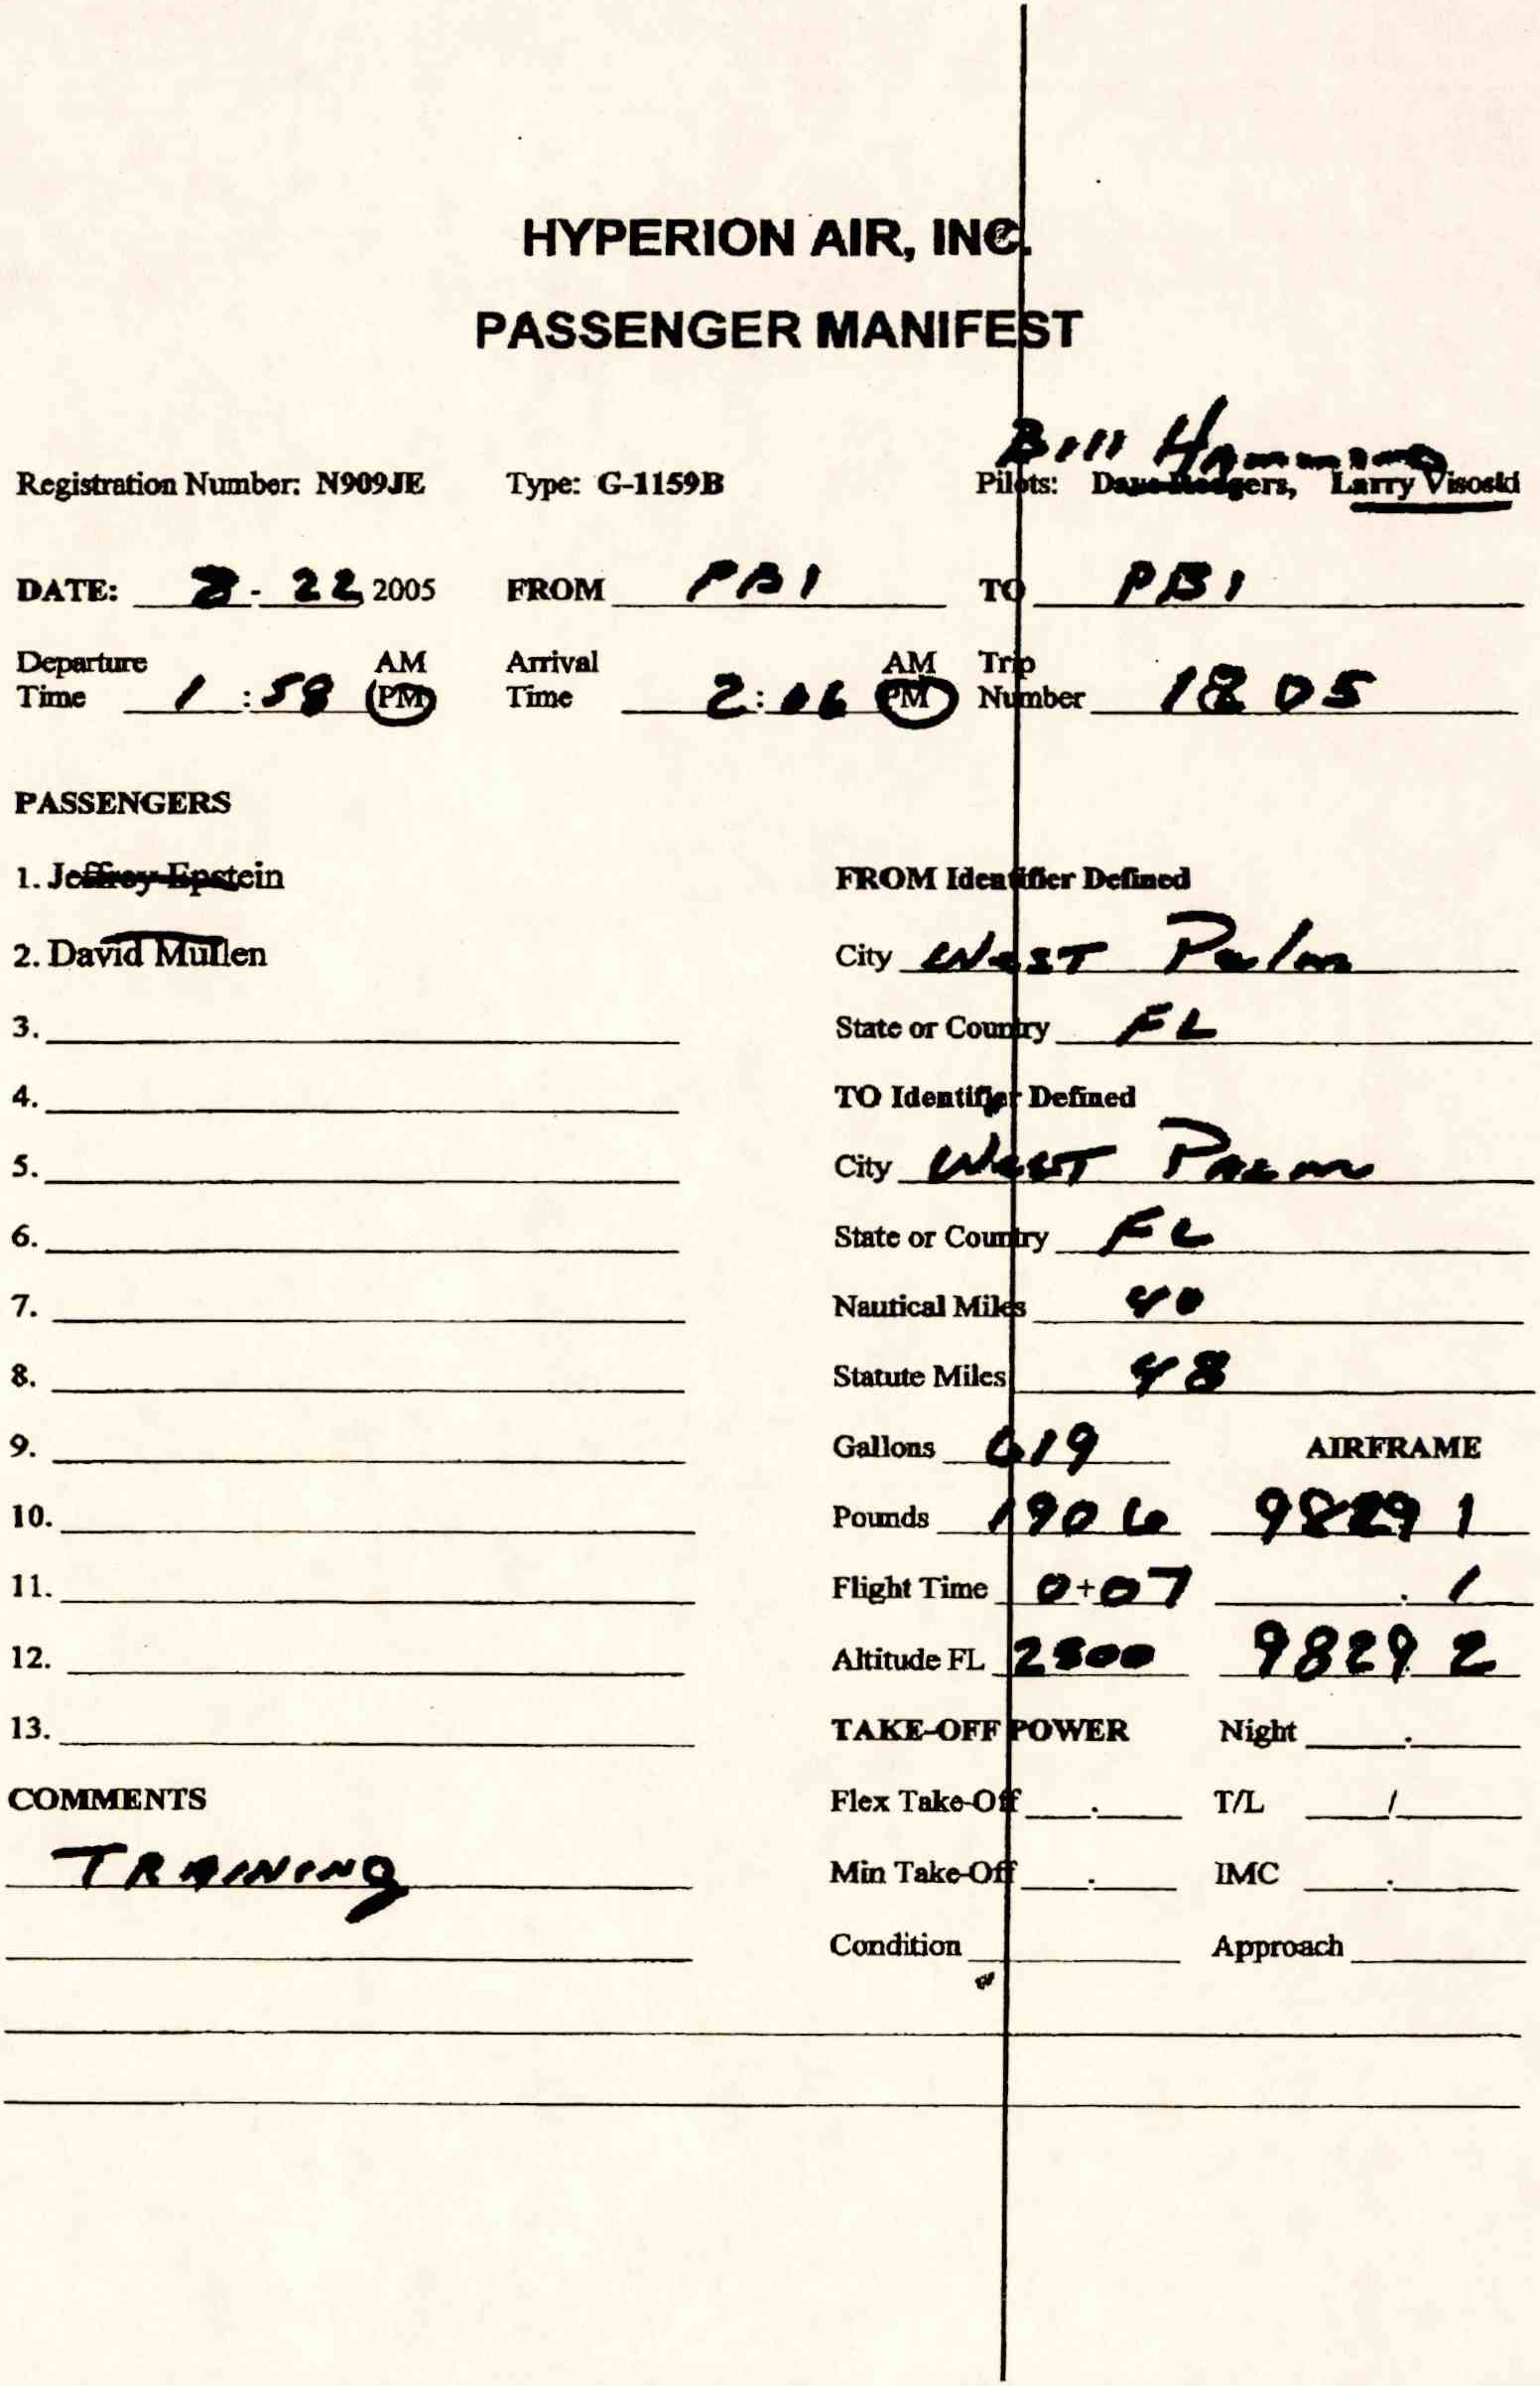 HYPERION AIR, INC.
PASSENGER MANIFEST
Bill Hammond
Registration Number: N909JE Type: G-1159B Pilots: Dave Rodgers, Larry Visoski
DATE: 8-22 2005 FROM PBI TO PBI
Departure AM Arrival AM Trip
Time 1:58 PM Time 2:06 PM Number 1805
PASSENGERS
1. Jeffrey Epstein FROM Identifier Defined
2. David Mullen City West Palm
3. State or Country FL
4. TO Identifier Defined
5. City West Palm
6. State or Country FL
7. Nautical Miles 40
8. Statute Miles 48
9. Gallons 619 AIRFRAME
10. Pounds 1906 9829 1
11. Flight Time 0+07 . 1
12. Altitude FL 2800 9829.2
13. TAKE-OFF POWER Night .
COMMENTS Flex Take-Off . T/L /
TRAINING Min Take-Off . IMC .
Condition Approach